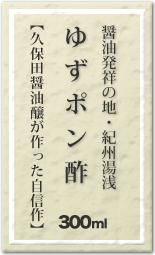 醤油発祥の地・紀州湯浅
ゆずポン酢
【久保田醤油醸が作った自信作】
300ml